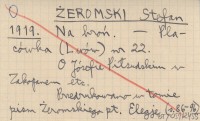 ŻEROMSKI Stefan
1919. Na broń. — Pla-
cówka (Lwów) nr 22.
O Józefie Piłsudskim w
Zakopanem etc.
Przedrukowano w tomie
pism Żeromskiego pt. Elegie